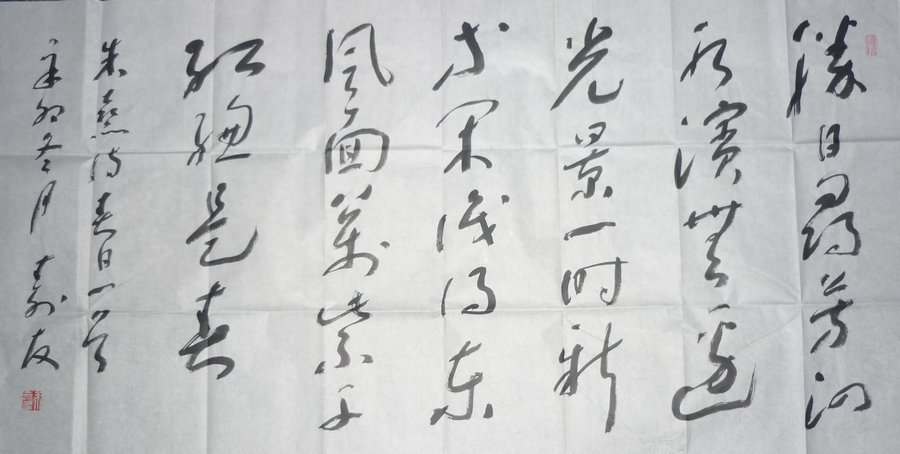 勝日尋芳泗
水濱無邊
光景一时新
等閑識得東
風面萬紫千
紅總是春
朱熹詩春日一首
辛卯冬月 友